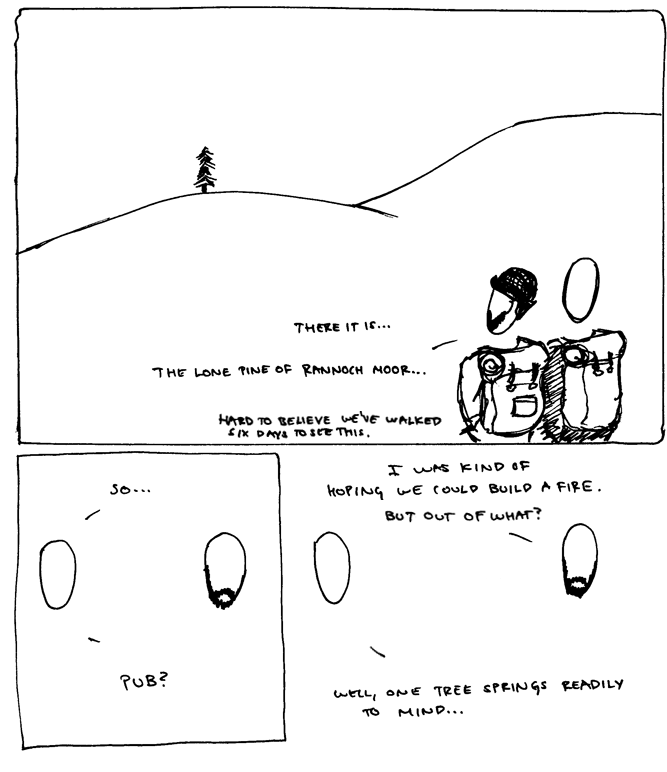 THERE IT IS...
THE LONE PINE OF RANNOCH MOOR...
HARD TO BELIEVE WE'VE WALKED
SIX DAYS TO SEE THIS.
SO...
PUB?
I WAS KIND OF
HOPING WE COULD BUILD A FIRE.
BUT OUT OF WHAT?
WELL, ONE TREE SPRINGS READILY
TO MIND...